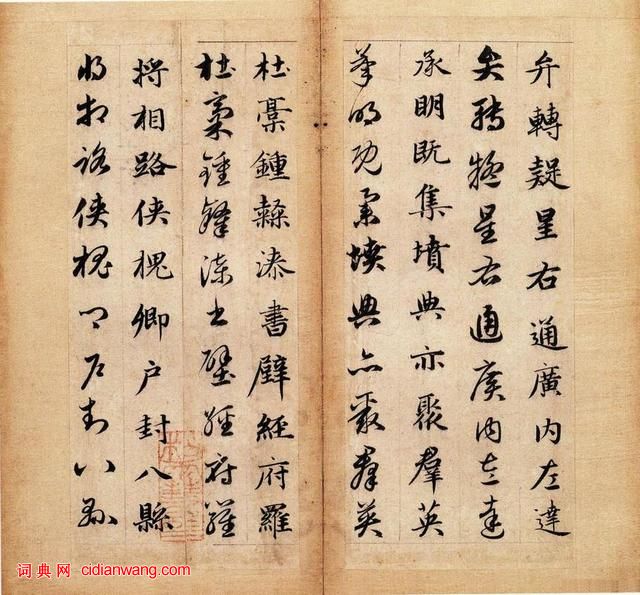 弁轉疑星右通廣内左達
弁轉疑星右通廣内左達
承明既集墳典亦聚羣英
承明既集墳典亦聚羣英
杜稾鍾隸漆書壁經府羅
杜稾鍾隸漆書壁經府羅
將相路俠槐卿户封八縣
將相路俠槐卿户封八縣
词典网 cidianwang.com